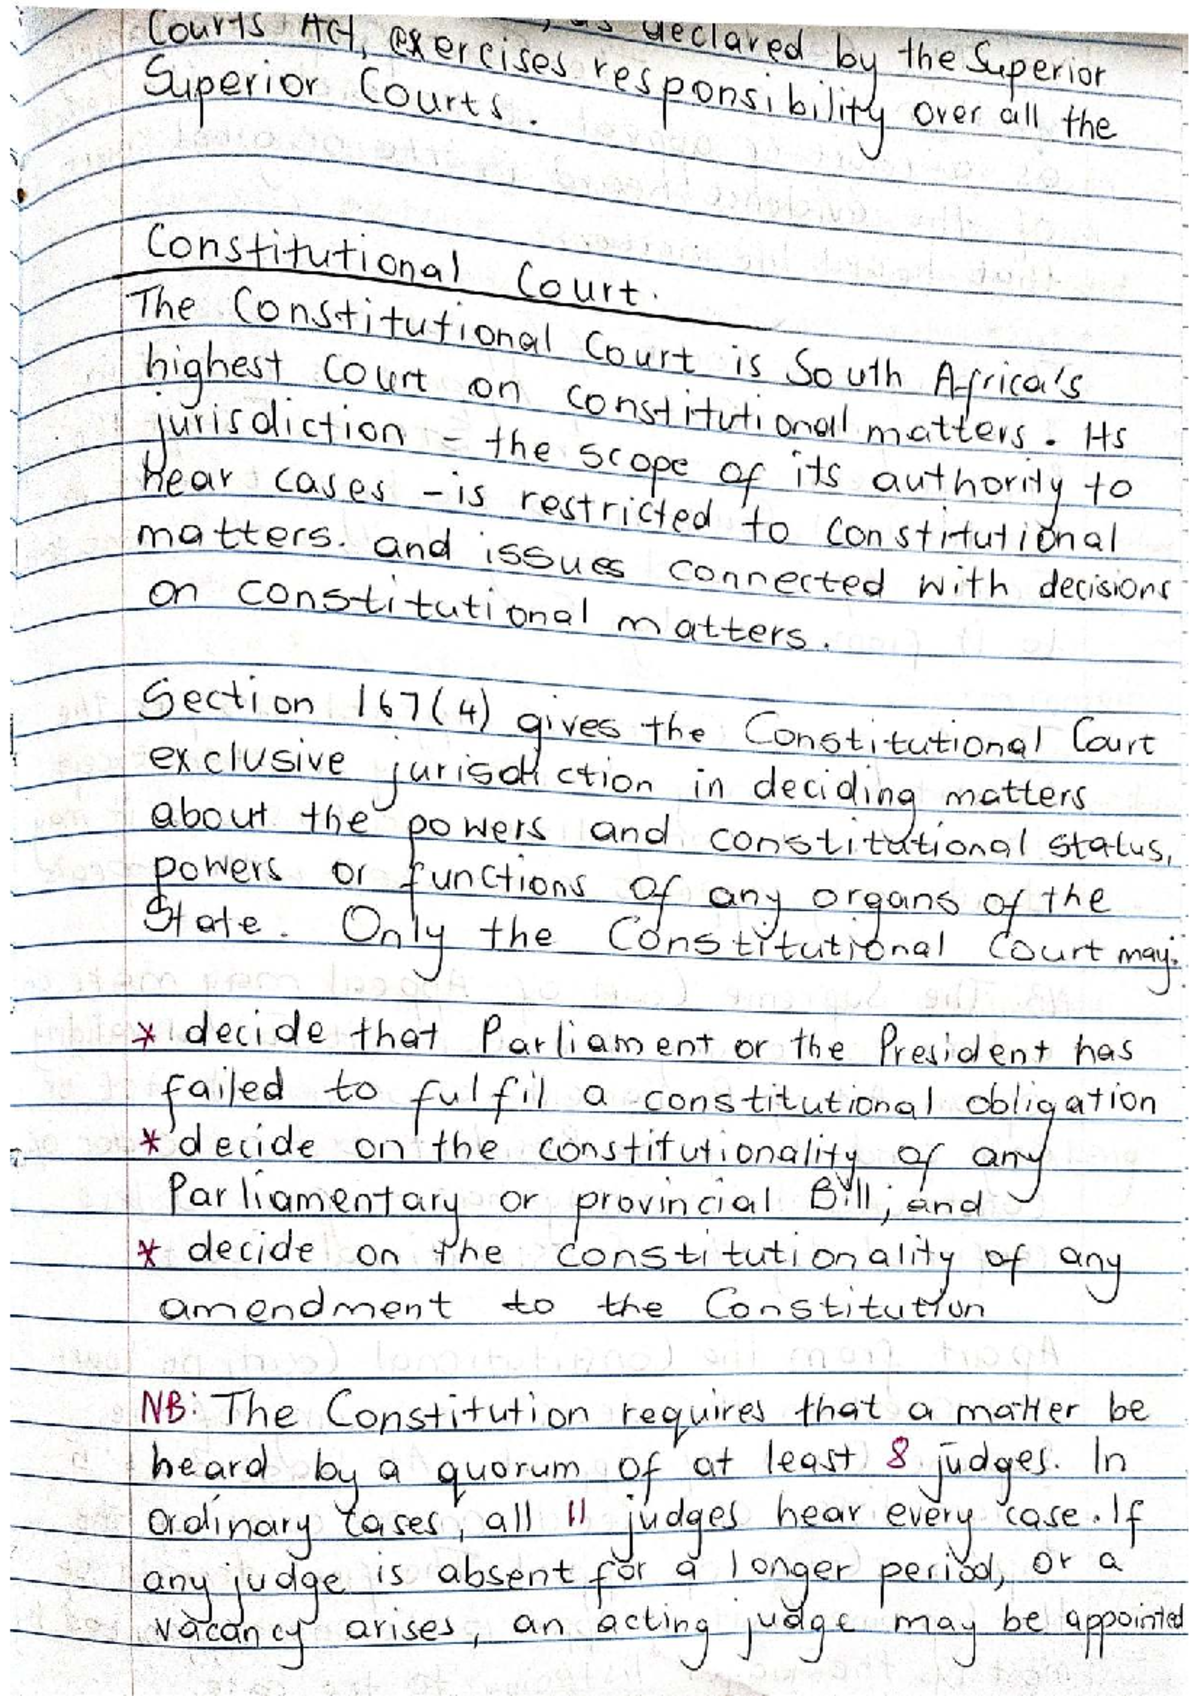 as declared by the Superior
Courts Act, exercises responsibility over all the
Superior Courts.
Constitutional Court.
The Constitutional Court is South Africa's
highest court on constitutional matters. Its
jurisdiction - the scope of its authority to
hear cases - is restricted to constitutional
matters. and issues connected with decisions
on constitutional matters.
Section 167(4) gives the Constitutional Court
exclusive jurisdiction in deciding matters
about the powers and constitutional status,
powers or functions of any organs of the
State. Only the Constitutional Court may:
* decide that Parliament or the President has
failed to fulfil a constitutional obligation
* decide on the constitutionality of any
Parliamentary or provincial Bill; and
* decide on the constitutionality of any
amendment to the Constitution
NB: The Constitution requires that a matter be
heard by a quorum of at least 8 judges. In
ordinary cases, all 11 judges hear every case. If
any judge is absent for a longer period, or a
vacancy arises, an acting judge may be appointed